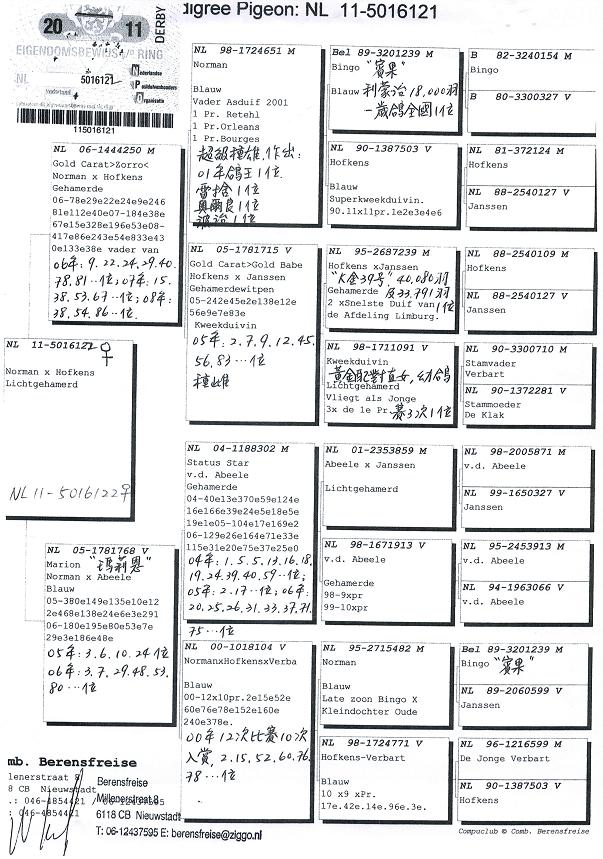 digree Pigeon: NL 11-5016121
20 11
DERBY
EIGENDOMSBEWIJS V/D RING
NL 5016121
nederland
Nederlandse
Postduivenhouders
Organisatie
115016121
NL 11-5016122 ♀
Norman x Hofkens
Lichtgehamerd
NL 11-5016122♀
NL 06-1444250 M
Gold Carat>Zorro<
Norman x Hofkens
Gehamerde
06-78e29e22e24e9e246
81e112e40e07-184e38e
67e15e328e196e53e08-
417e86e243e54e833e43
0e133e38e vader van
06年:9.22.24.29.40.
78.81…位;07年:15.
38.53.67…位;08年:
38.54.86…位.
NL 05-1781768 V
Marion "瑪莉恩"
Norman x Abeele
Blauw
05-380e149e135e10e12
2e468e138e24e6e3e291
06-180e195e80e53e7e
29e3e186e48e
05年:3.6.10.24位
06年:3.7.29.48.53.
80…位
NL 98-1724651 M
Norman
Blauw
Vader Asduif 2001
1 Pr. Retehl
1 Pr.Orleans
1 Pr.Bourges
超級種雄,作出:
01年鴿王1位
雷捨1位
奧爾良1位
波治1位
NL 05-1781715 V
Gold Carat>Gold Babe
Hofkens x Janssen
Gehamerdewitpen
05-242e45e2e138e12e
56e9e7e83e
Kweekduivin
05年:2.7.9.12.45.
56.83…位
種雌
NL 04-1188302 M
Status Star
v.d. Abeele
Gehamerde
04-40e13e370e59e124e
16e166e39e24e5e18e5e
19e1e05-104e17e169e2
06-129e26e164e71e33e
115e31e20e75e37e25e0
04年:1.5.5.13.16.18.
19.24.39.40.59…位;
05年:2.17…位;06年:
20.25.26.31.33.37.71.
75…位
NL 00-1018104 V
NormanxHofkensxVerba
Blauw
00-12x10pr.2e15e52e
60e76e78e152e160e
240e378e.
00年12次比賽10次
入賞,2.15.52.60.76.
78…位
Bel 89-3201239 M
Bingo "賓果"
Blauw 利蒙治18,000羽
一歲鴿全國1位
NL 90-1387503 V
Hofkens
Blauw
Superkweekduivin.
90.11x11pr.1e2e3e4e6
NL 95-2687239 M
Hofkens xJanssen
"K金39号"40,080羽
Gehamerde 及33,791羽
2 xSnelste Duif van 1位
de Afdeling Limburg.
NL 98-1711091 V
Kweekduivin
黃金配對直女,幼鴿
Lichtgehamerd
Vliegt als Jonge
3x de 1e Pr. 賽3次1位
NL 01-2353859 M
Abeele x Janssen
Lichtgehamerd
NL 98-1671913 V
v.d. Abeele
Gehamerde
98-9xpr
99-10xpr
NL 95-2715482 M
Norman
Blauw
Late zoon Bingo X
Kleindochter Oude
NL 98-1724771 V
Hofkens-Verbart
Blauw
10 x9 xPr.
17e.42e.14e.96e.3e.
B 82-3240154 M
Bingo
B 80-3300327 V
NL 81-372124 M
Hofkens
NL 88-2540127 V
Janssen
NL 88-2540109 M
Hofkens
NL 88-2540127 V
Janssen
NL 90-3300710 M
Stamvader
Verbart
NL 90-1372281 V
Stammoeder
De Klak
NL 98-2005871 M
v.d. Abeele
NL 99-1650327 V
Janssen
NL 95-2453913 M
v.d. Abeele
NL 94-1963066 V
v.d. Abeele
Bel 89-3201239 M
Bingo "賓果"
NL 89-2060599 V
Janssen
NL 96-1216599 M
De Jonge Verbart
NL 90-1387503 V
Hofkens
mb. Berensfreise
lenerstraat 8
8 CB Nieuwstadt
.: 046-4854421 / 06-12437595
: 046-4854421
Berensfreise
Millenerstraat 8
6118 CB Nieuwstadt
T: 06-12437595 E: berensfreise@ziggo.nl
Compuclub © Comb. Berensfreise